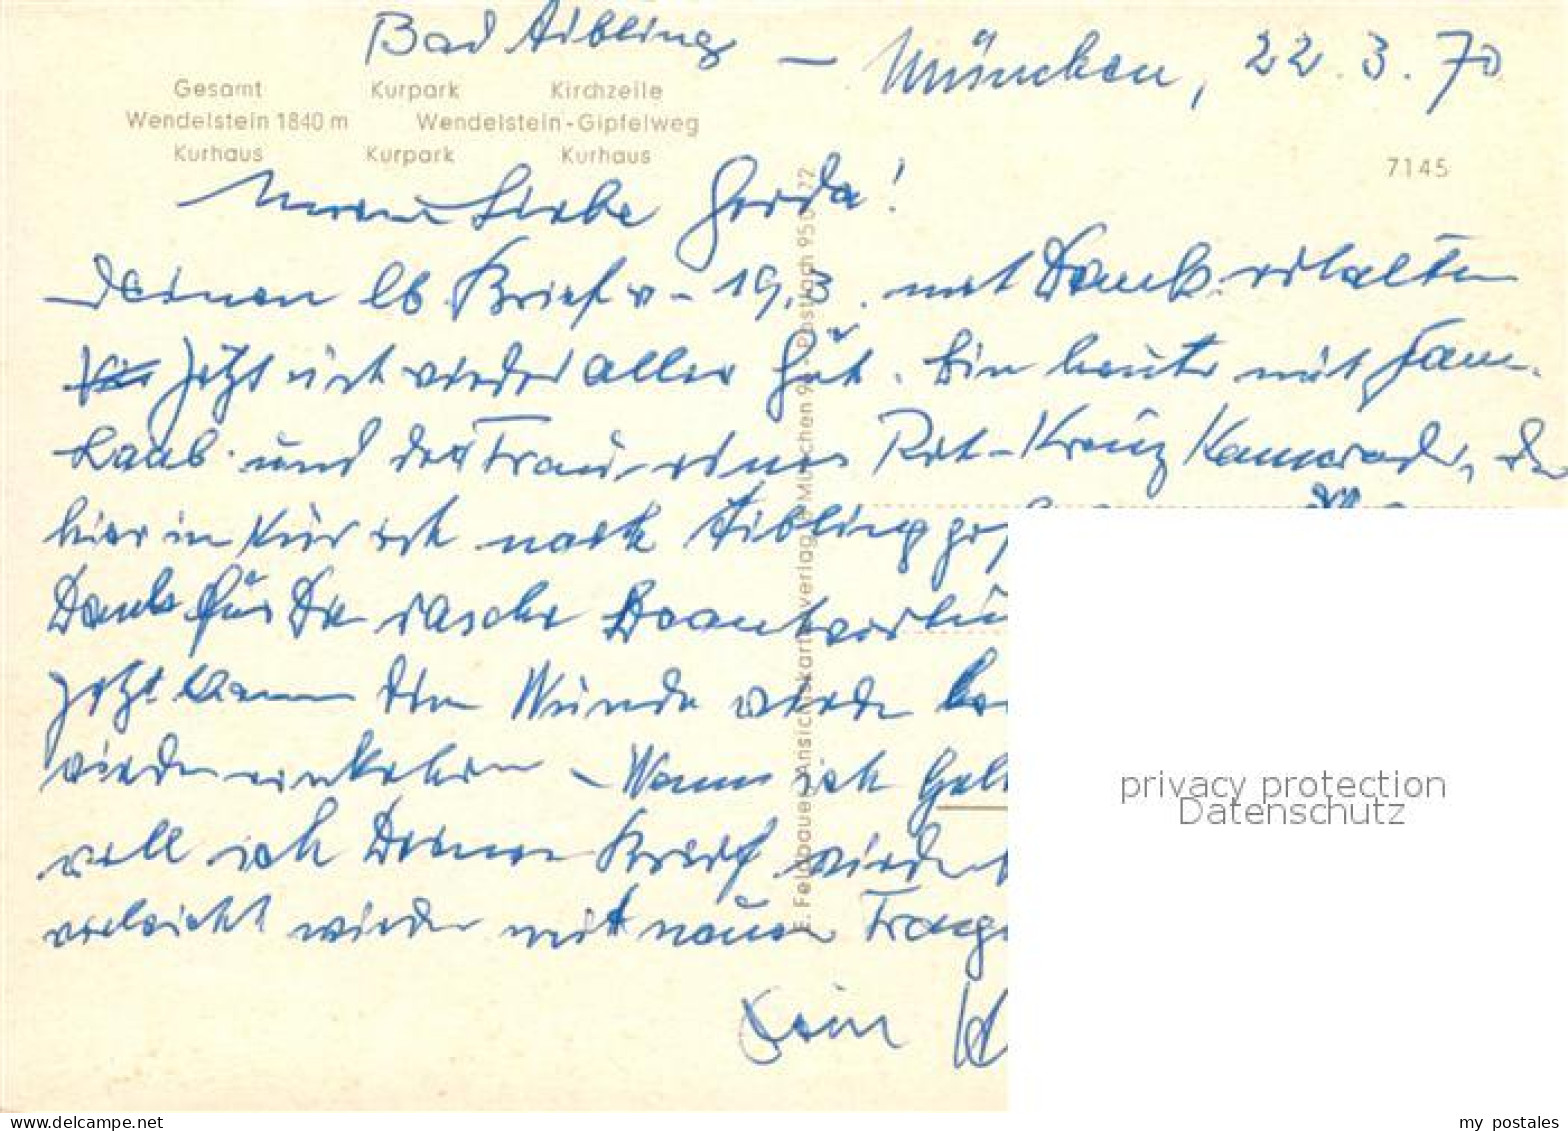 Bad Aibling – München, 22.3.70
Gesamt Kurpark Kirchzeile
Wendelstein 1840 m Wendelstein-Gipfelweg
Kurhaus Kurpark Kurhaus
7145
Meine Liebe Gerda!
Deinen lb Brief v. 19.3. mit Dank erhalten
Jetzt ist wieder alles gut. Bin heute mit Fam.
Laab. und der Frau eines Rot-Kreuz Kamerad,
hier in Kur ist nach Aibling
Dank für Die rasche Beantwortu
Jetzt kann die Wunde
wieder einkehren – Wenn ich
will ich Deinen Brief wieder
vieleicht wieder mit neuen Frage
Dein
E. Feldbauer, Ansichtskartenverlag, 8 München 95 - Postfach 950
privacy protection
Datenschutz
www.delcampe.net
my_postales